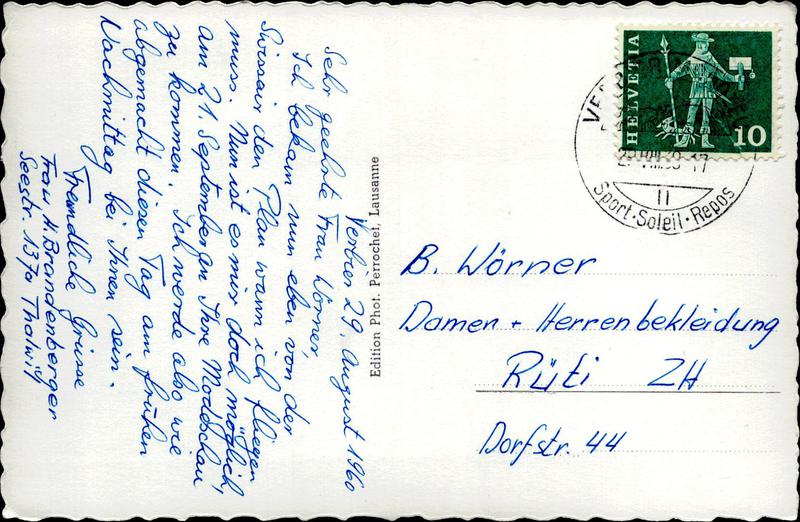 Verbier 29. August 1960
Sehr geehrte Frau Wörner,
Ich bekam nun eben von der
Swissair den Plan wann ich fliegen
muss. Nun ist es mir doch möglich,
am 21. September an Ihre Modeschau
zu kommen. Ich werde also wie
abgemacht diesen Tag am frühen
Nachmittag bei Ihnen sein.
Freundliche Grüsse
Frau H. Brandenberger
Seestr. 137a Thalwil
Edition Phot. Perrochet, Lausanne
HELVETIA
10
Sport · Soleil · Repos
B. Wörner
Damen + Herrenbekleidung
Rüti ZH
Dorfstr. 44